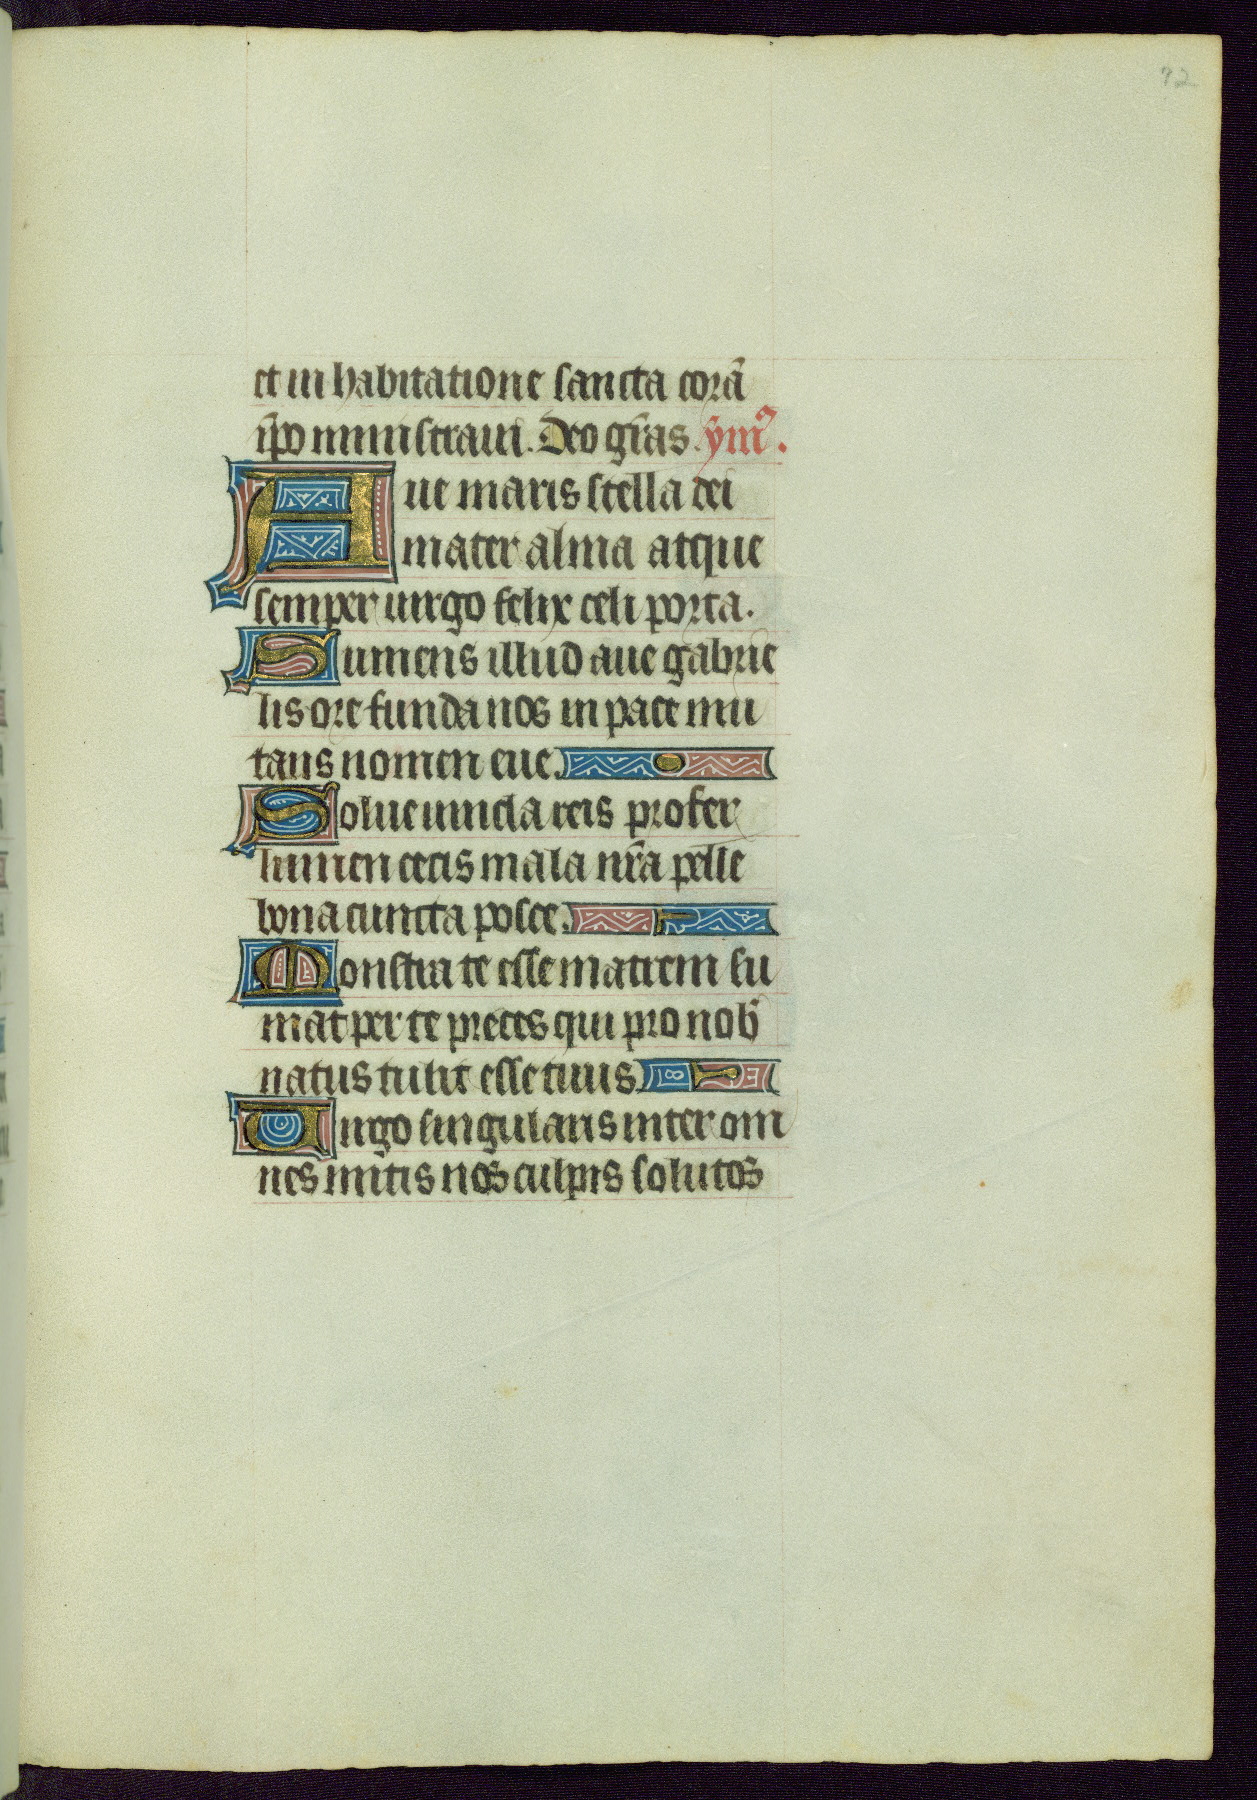 72
et in habitatione sancta corã
ip̃o ministraui. Deo gr̃as. ym̃⁹.
Aue maris stella dei
mater alma atque
semper uirgo felix celi porta.
Sumens illud aue gabrie
lis ore funda nos in pace mu
tans nomen eue.
Solue uincla reis profer
lumen cecis mala nr̃a pelle
bona cuncta posce.
Monstra te esse matrem su
mat per te preces qui pro nob̃
natus tulit esse tuus
Uirgo singularis inter om
nes mitis nos culpis solutos